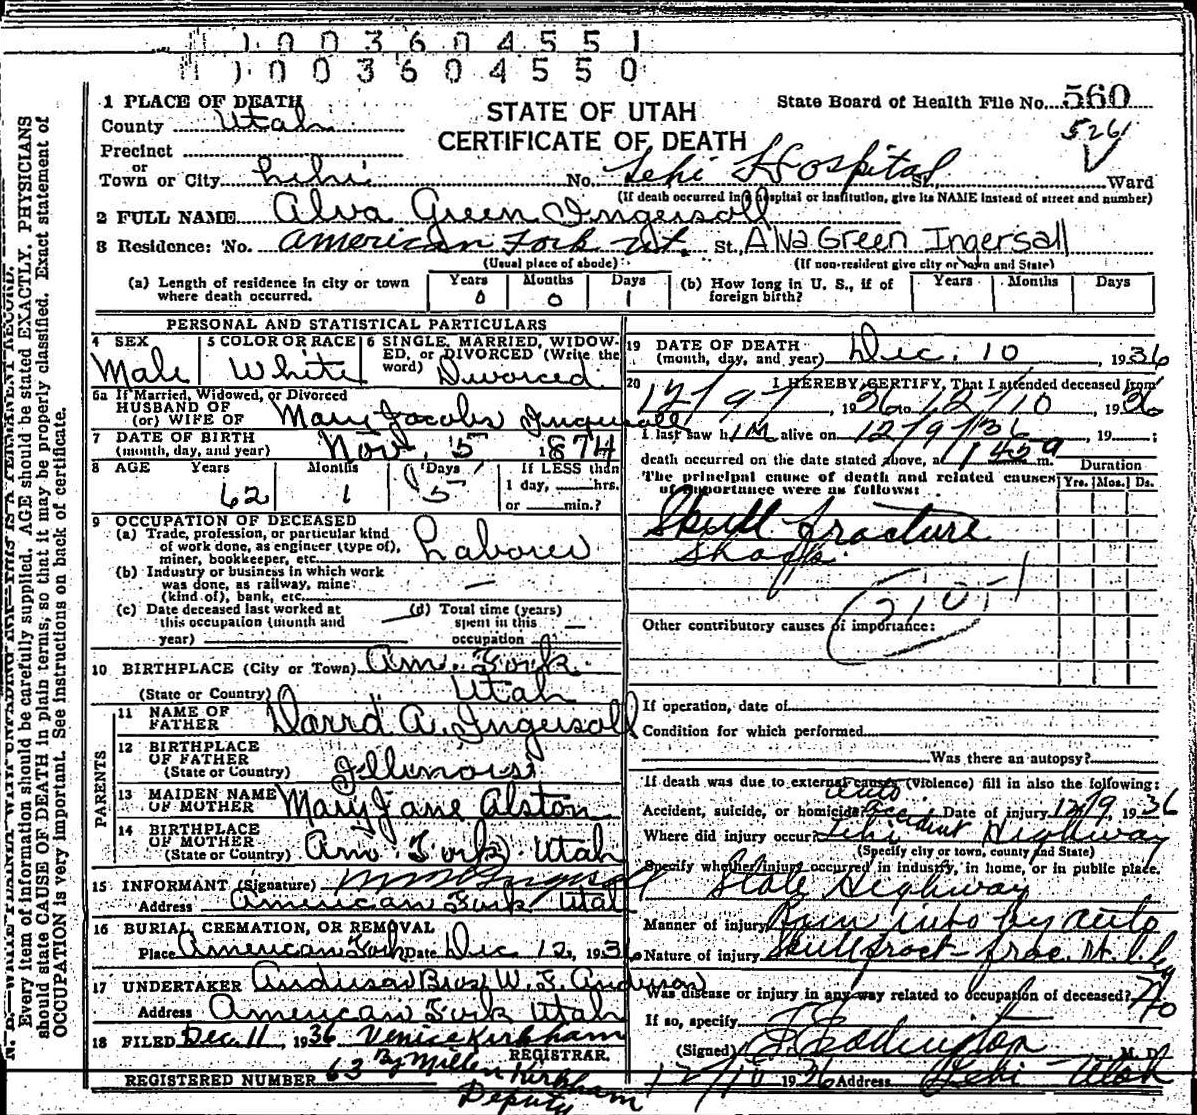 1003604551
1003604550
1 PLACE OF DEATH
County Utah
Precinct
or
Town or City Lehi No. Lehi Hospital St., Ward
(If death occurred in a hospital or institution, give its NAME instead of street and number)
STATE OF UTAH
CERTIFICATE OF DEATH
State Board of Health File No. 560
526
2 FULL NAME Alva Green Ingersoll
3 Residence: No. American Fork Ut. St., Alva Green Ingersall
(Usual place of abode) (If non-resident give city or town and State)
(a) Length of residence in city or town where death occurred. Years 0 Months 0 Days 1
(b) How long in U. S., if of foreign birth? Years Months Days
PERSONAL AND STATISTICAL PARTICULARS
4 SEX Male
5 COLOR OR RACE White
6 SINGLE, MARRIED, WIDOWED, or DIVORCED (Write the word) Divorced
6a If Married, Widowed, or Divorced
HUSBAND OF
(or) WIFE OF Mary Jacobs Ingersoll
7 DATE OF BIRTH
(month, day, and year) Nov. 5 1874
8 AGE Years 62 Months 1 Days 5 If LESS than 1 day, hrs. or min.?
9 OCCUPATION OF DECEASED
(a) Trade, profession, or particular kind of work done, as engineer (type of), miner, bookkeeper, etc. Laborer
(b) Industry or business in which work was done, as railway, mine (kind of), bank, etc. —
(c) Date deceased last worked at this occupation (month and year) —
(d) Total time (years) spent in this occupation —
10 BIRTHPLACE (City or Town) Am. Fork
(State or Country) Utah
PARENTS
11 NAME OF FATHER A. Ingersoll
12 BIRTHPLACE OF FATHER
(State or Country) Illinois
13 MAIDEN NAME OF MOTHER Mary Jane Alston
14 BIRTHPLACE OF MOTHER
(State or Country) Am. Fork Utah
15 INFORMANT (Signature) Ingersoll
Address American Fork Utah
16 BURIAL, CREMATION, OR REMOVAL
Place American Fork Date Dec 12, 1936
17 UNDERTAKER Anderson Bros W. F. Anderson
Address American Fork Utah
18 FILED Dec. 11, 1936 Venice Kirkham
REGISTRAR.
REGISTERED NUMBER 63 By Kirkham
Deputy
19 DATE OF DEATH
(month, day, and year) Dec. 10, 1936
20 I HEREBY CERTIFY, That I attended deceased from
12/9/, 1936 to 12/10, 1936
I last saw him alive on 12/9/36, 19 ;
death occurred on the date stated above, at 1 45 a m.
The principal cause of death and related causes of importance were as follows:
Duration
Yrs. Mos. Ds.
Skull fracture
Shock
Other contributory causes of importance:
If operation, date of
Condition for which performed
Was there an autopsy?
If death was due to external causes (Violence) fill in also the following:
Accident, suicide, or homicide? Auto Accident Date of injury 12/9, 1936
Where did injury occur? Lehi Highway
(Specify city or town, county and State)
Specify whether injury occurred in industry, in home, or in public place.
State Highway
Manner of injury Run into by auto
Nature of injury Skull fract - frac. rt. leg
Was disease or injury in any way related to occupation of deceased? No
If so, specify
(Signed) Eddington M. D.
12/10 1936 Address Lehi Utah
Every item of information should be carefully supplied. AGE should be stated EXACTLY. PHYSICIANS
should state CAUSE OF DEATH in plain terms, so that it may be properly classified. Exact statement of
OCCUPATION is very important. See instructions on back of certificate.